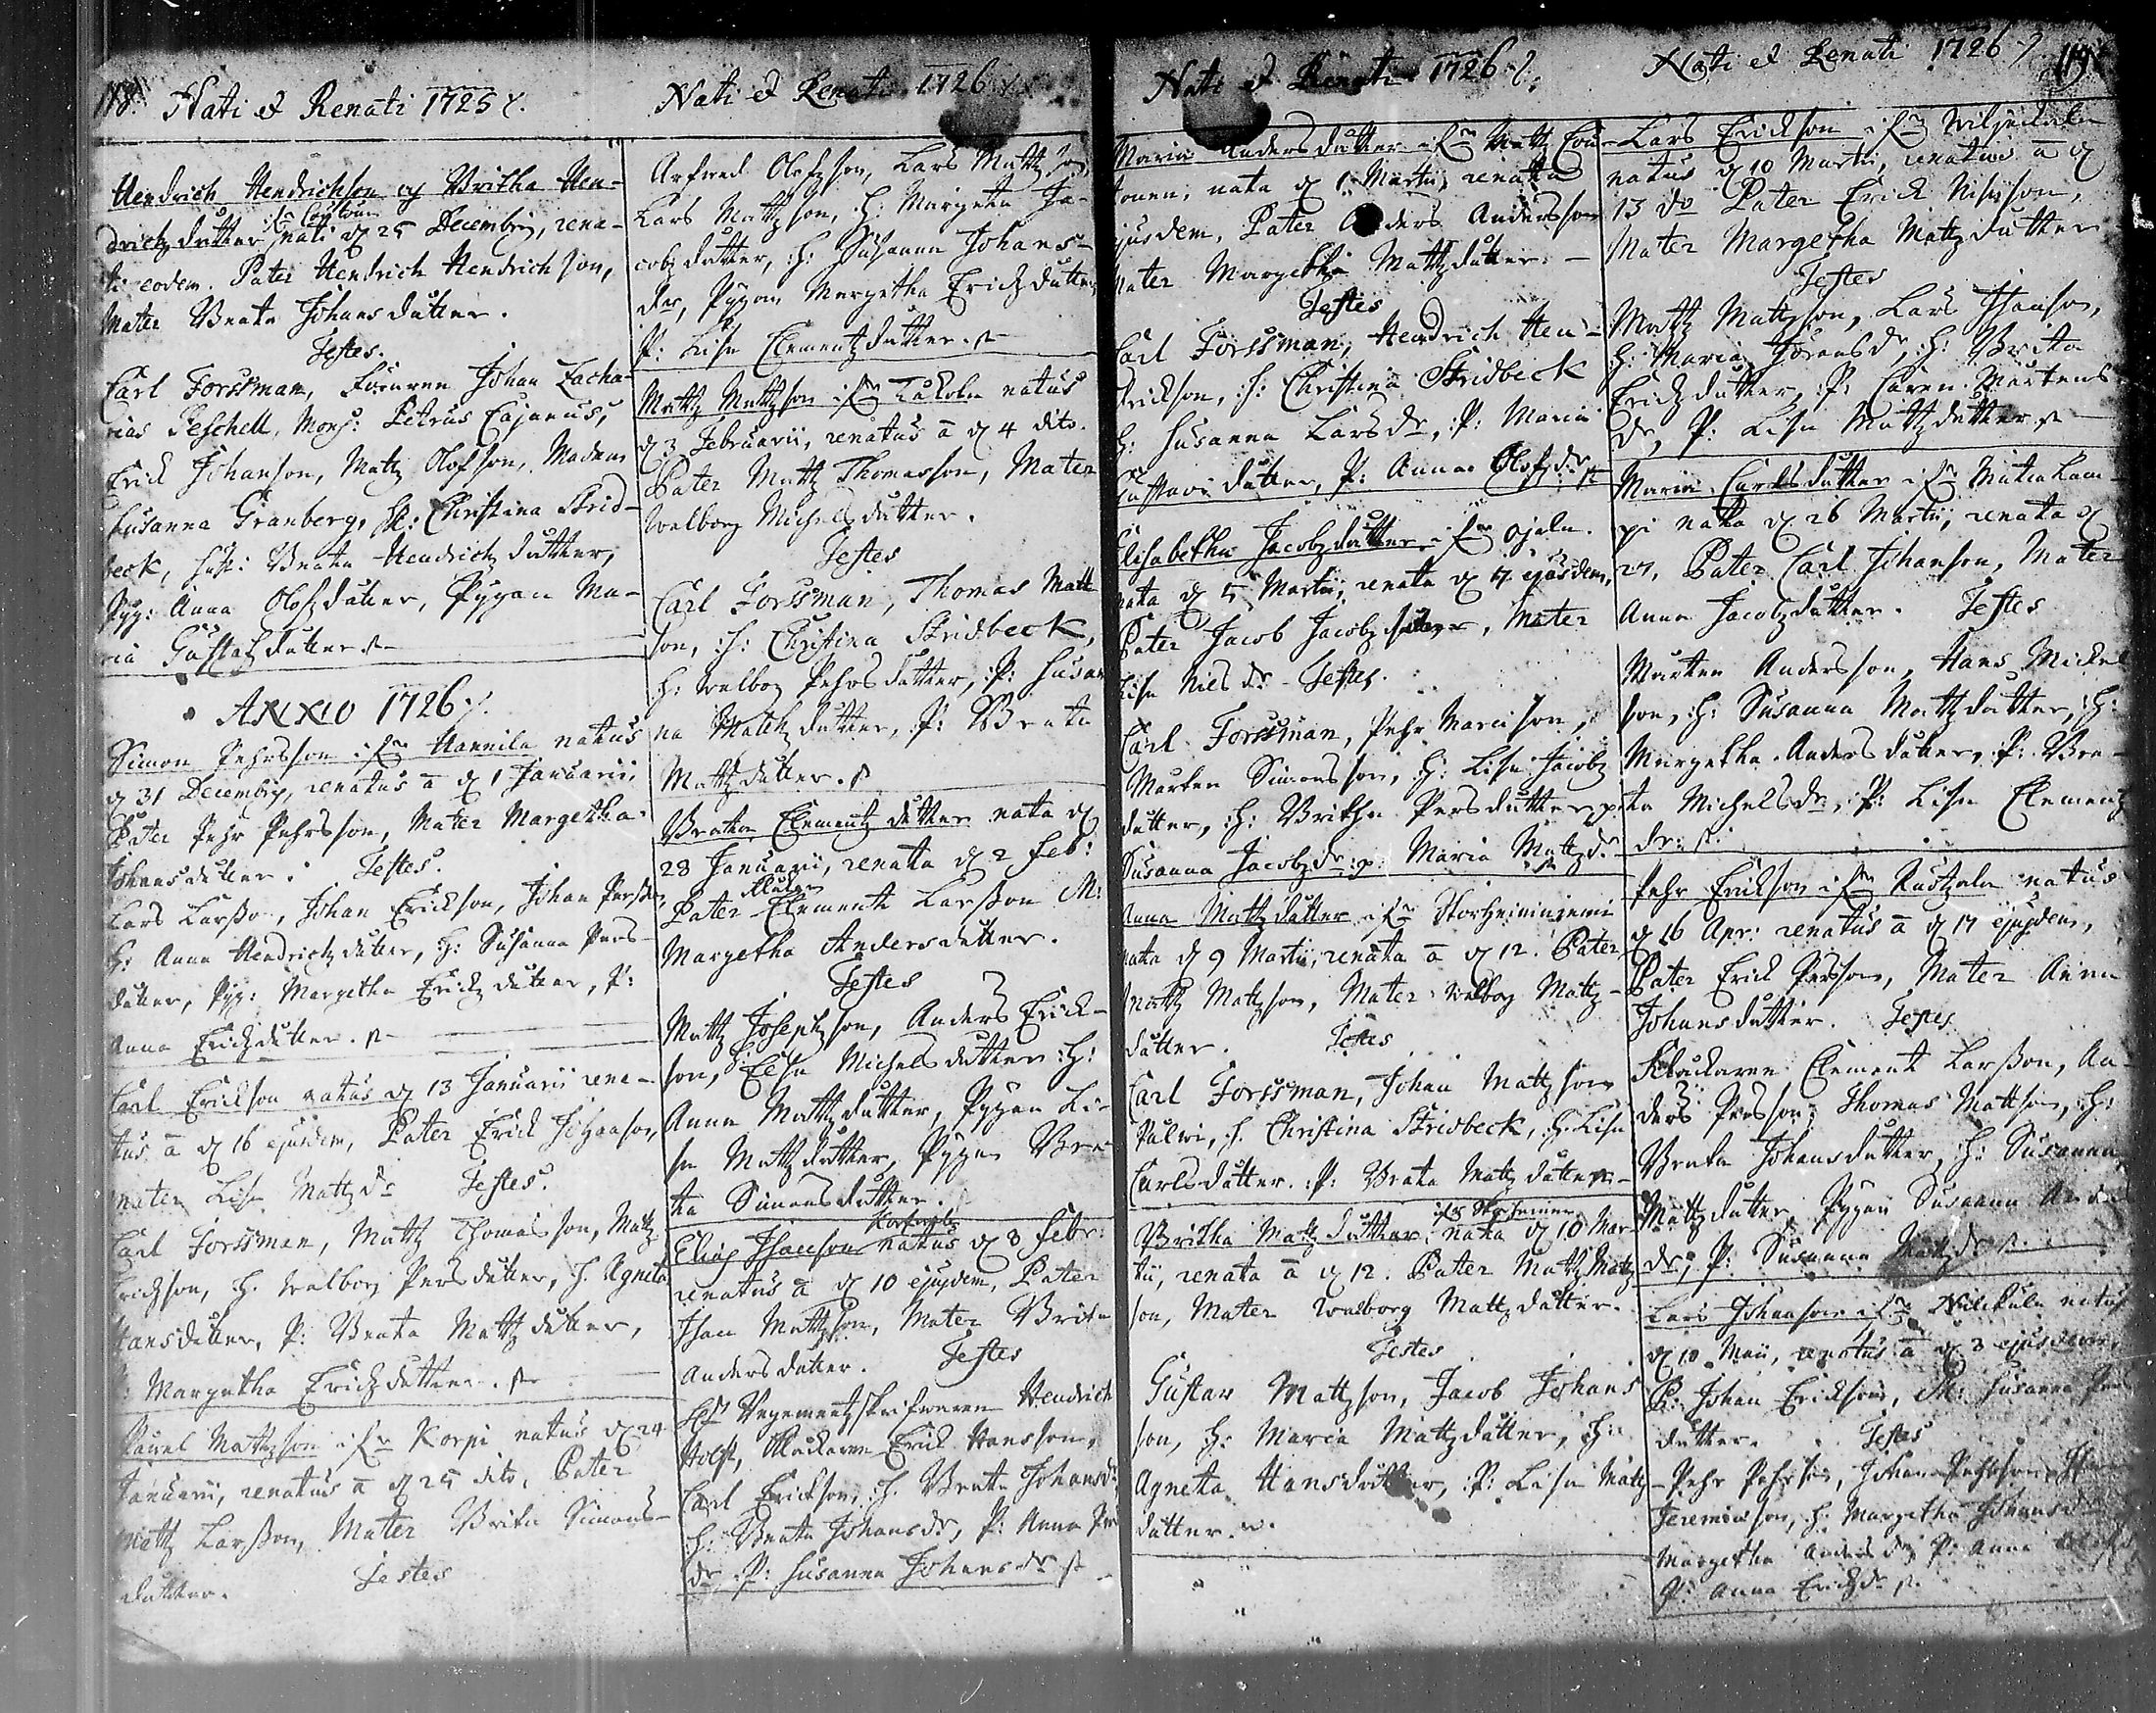 118. Nati et Renati 1725
Hendrich Hendrichson og Britha Hen-
drichzdutter nati d 25 Decembris, rena-
ti eodem. Pater Hendrich Hendrichson,
Mater Beata Johansdutter.
Testes.
Carl Forssman, Johan Zacha-
rias Peschell, Mons: Petrus Cajanus,
Erick Johanson, Matz Olofson, Madam
Susanna Granberg, H: Christina Strid-
beck, Beata Hendrichzdutter,
Pyg: Anna Olofzdutter, Pygan Ma-
ria Gustafzdutter
ANNO 1726
Simon Pehrsson i fr Hannila natus
d 31 Decembris, renatus a d 1 Januarii
Pater Pehr Pehrsson, Mater Margetha
Johansdutter. Testes.
Lars Larsson, Johan Erickson, Johan Persson,
H: Anna Hendrichzdutter, H: Susanna Pers-
dutter, Pyg: Margetha Erickzdutter, P:
Anna Erickzdutter.
Carl Erickson natus d 13 Januarii rena-
tus a d 16 ejusdem, Pater Erick Johanson,
Mater Lisa Matzdr Testes.
Carl Forssman, Mattz Thomasson, Matz
Erickson, H. Walborg Persdutter, H. Agneta
Hansdutter, P: Beata Mattzdutter,
P: Margetha Erickzdutter.
Pauel Mattzson i fr Korpi natus d 24
Januarii, renatus a d 25 dito, Pater
Mattz Larsson, Mater Brita Simons-
dutter. Testes
Nati et Renati 1726
Olofzson, Lars Mattzson
Lars Mattzson, H: Margeta Ja-
cobzdutter, H: Susanna Johans-
dr, Pygan Margetha Erickzdutter,
P: Lisa Clementzdutter.
Mattz Mattzson i fr Takola natus
d 3 Februarii, renatus a d 4 dito.
Pater Mattz Thomasson, Mater
Walborg Michelsdutter.
Testes
Carl Forssman, Thomas Matt-
son, H: Christina Stridbeck,
H: Walbor Pehrsdutter, P: Susan
na Mattzdutter, P: Beata
Mattzdutter.
Beata Clementzdutter nata d
28 Januarii, renata d 2 Feb:
Pater Clement Larsson M:
Margetha Andersdutter.
Testes
Mattz Josephzson, Anders Erick-
son, H: Lisa Michelsdutter H:
Anna Mattzdutter, Pygan Li-
sa Mattzdutter, Pygan Bea-
ta Simonsdutter.
Elias Isacson natus d 8 Febr:
renatus a d 10 ejusdem, Pater
Isac Mattzson, Mater Brita
Andersdutter. Testes
Hendrich
Holst, Klockaren Erick Hansson,
Carl Erickson, H. Beata Johansdr
H: Beata Johansdr, P: Anna Per
dr P: Susanna Johansdr
Nati et Renati 1726
Maria Andersdutter i fr
nata d 1 Martii renata
ejusdem, Pater Anders Andersson
Mater Margetha Mattzdutter.
Testes
Carl Forssman, Hendrich Hen-
drickson, H: Christina Stridbeck
H. Susanna Larsdr, P: Maria
Gustavi dutter, P: Anna Olofzdr
Elisabetha Jacobzdutter i fr Ojala
nata d 5 Martii, renata d 17 ejusdem,
Pater Jacob Jacobzson, Mater
Lisa Nilsdr - Testes
Carl Forssman, Pehr Marcison,
Marten Simonsson, H: Lisa Jacobz
dutter, H: Britha Persdutter p.
Susanna Jacobzdr: p: Maria Mattzdr
Anna Mattzdutter i fr Storheininiemi
nata d 9 Martii, renata a d 12. Pater
Mattz Mattzson, Mater Walbor Mattz-
dutter. Testes
Carl Forssman, Johan Mattzson
H. Christina Stridbeck, H. Lisa
Carlsdutter. P: Beata Matzdutter
Britha Mattzdutter nata d 10 Mar-
tii, renata a d 12. Pater Mattz Mattz
son, Mater Walborg Mattzdutter.
Testes
Gustav Mattzson, Jacob Johans
son, H: Maria Mattzdutter, H:
Agneta Hansdutter, P: Lisa Mattz-
dutter.
Nati et Renati 1726 119
Lars Erickson i fr
natus d 10 Martii, renatus a d
13 do Pater Erick Nilsson,
Mater Margetha Mattzdutter
Testes
Mattz Mattzson, Lars Isacson,
H: Maria Göransdr, H: Brita
Erickzdutter, P: Caren Mårtens
dr, P: Lisa Mattzdutter
Maria Carlsdutter i fr
nata d 26 Martii, renata d
27, Pater Carl Johanson, Mater
Anna Jacobzdutter. Testes
Mårten Andersson, Hans Mickel
son, H: Susanna Mattzdutter, H:
Margetha Andersdutter, P: Bea-
ta Michelsdr, P: Lisa Clementz
dr:
Pehr Erickson i fr natus
d 16 Apr: renatus a d 17 ejusdem,
Pater Erick Persson, Mater Anna
Johansdutter. Testes
Klockaren Clement Larsson, An-
ders Persson, Thomas Mattson, H:
Beata Johansdutter, H: Susanna
Mattzdutter, Pygan Susanna Anders
dr, P: Susanna Mattzdr
Lars Johanson i fr natus
d 10 Maii, renatus a d 3 ejusdem,
P: Johan Erickson, M: Susanna Pers
dutter. Testes
Pehr Pehrson, Johan Pehrson,
Jeremiason, H: Margetha Johansdr
Margetha Andersdr P: Anna
P: Anna Erickzdr